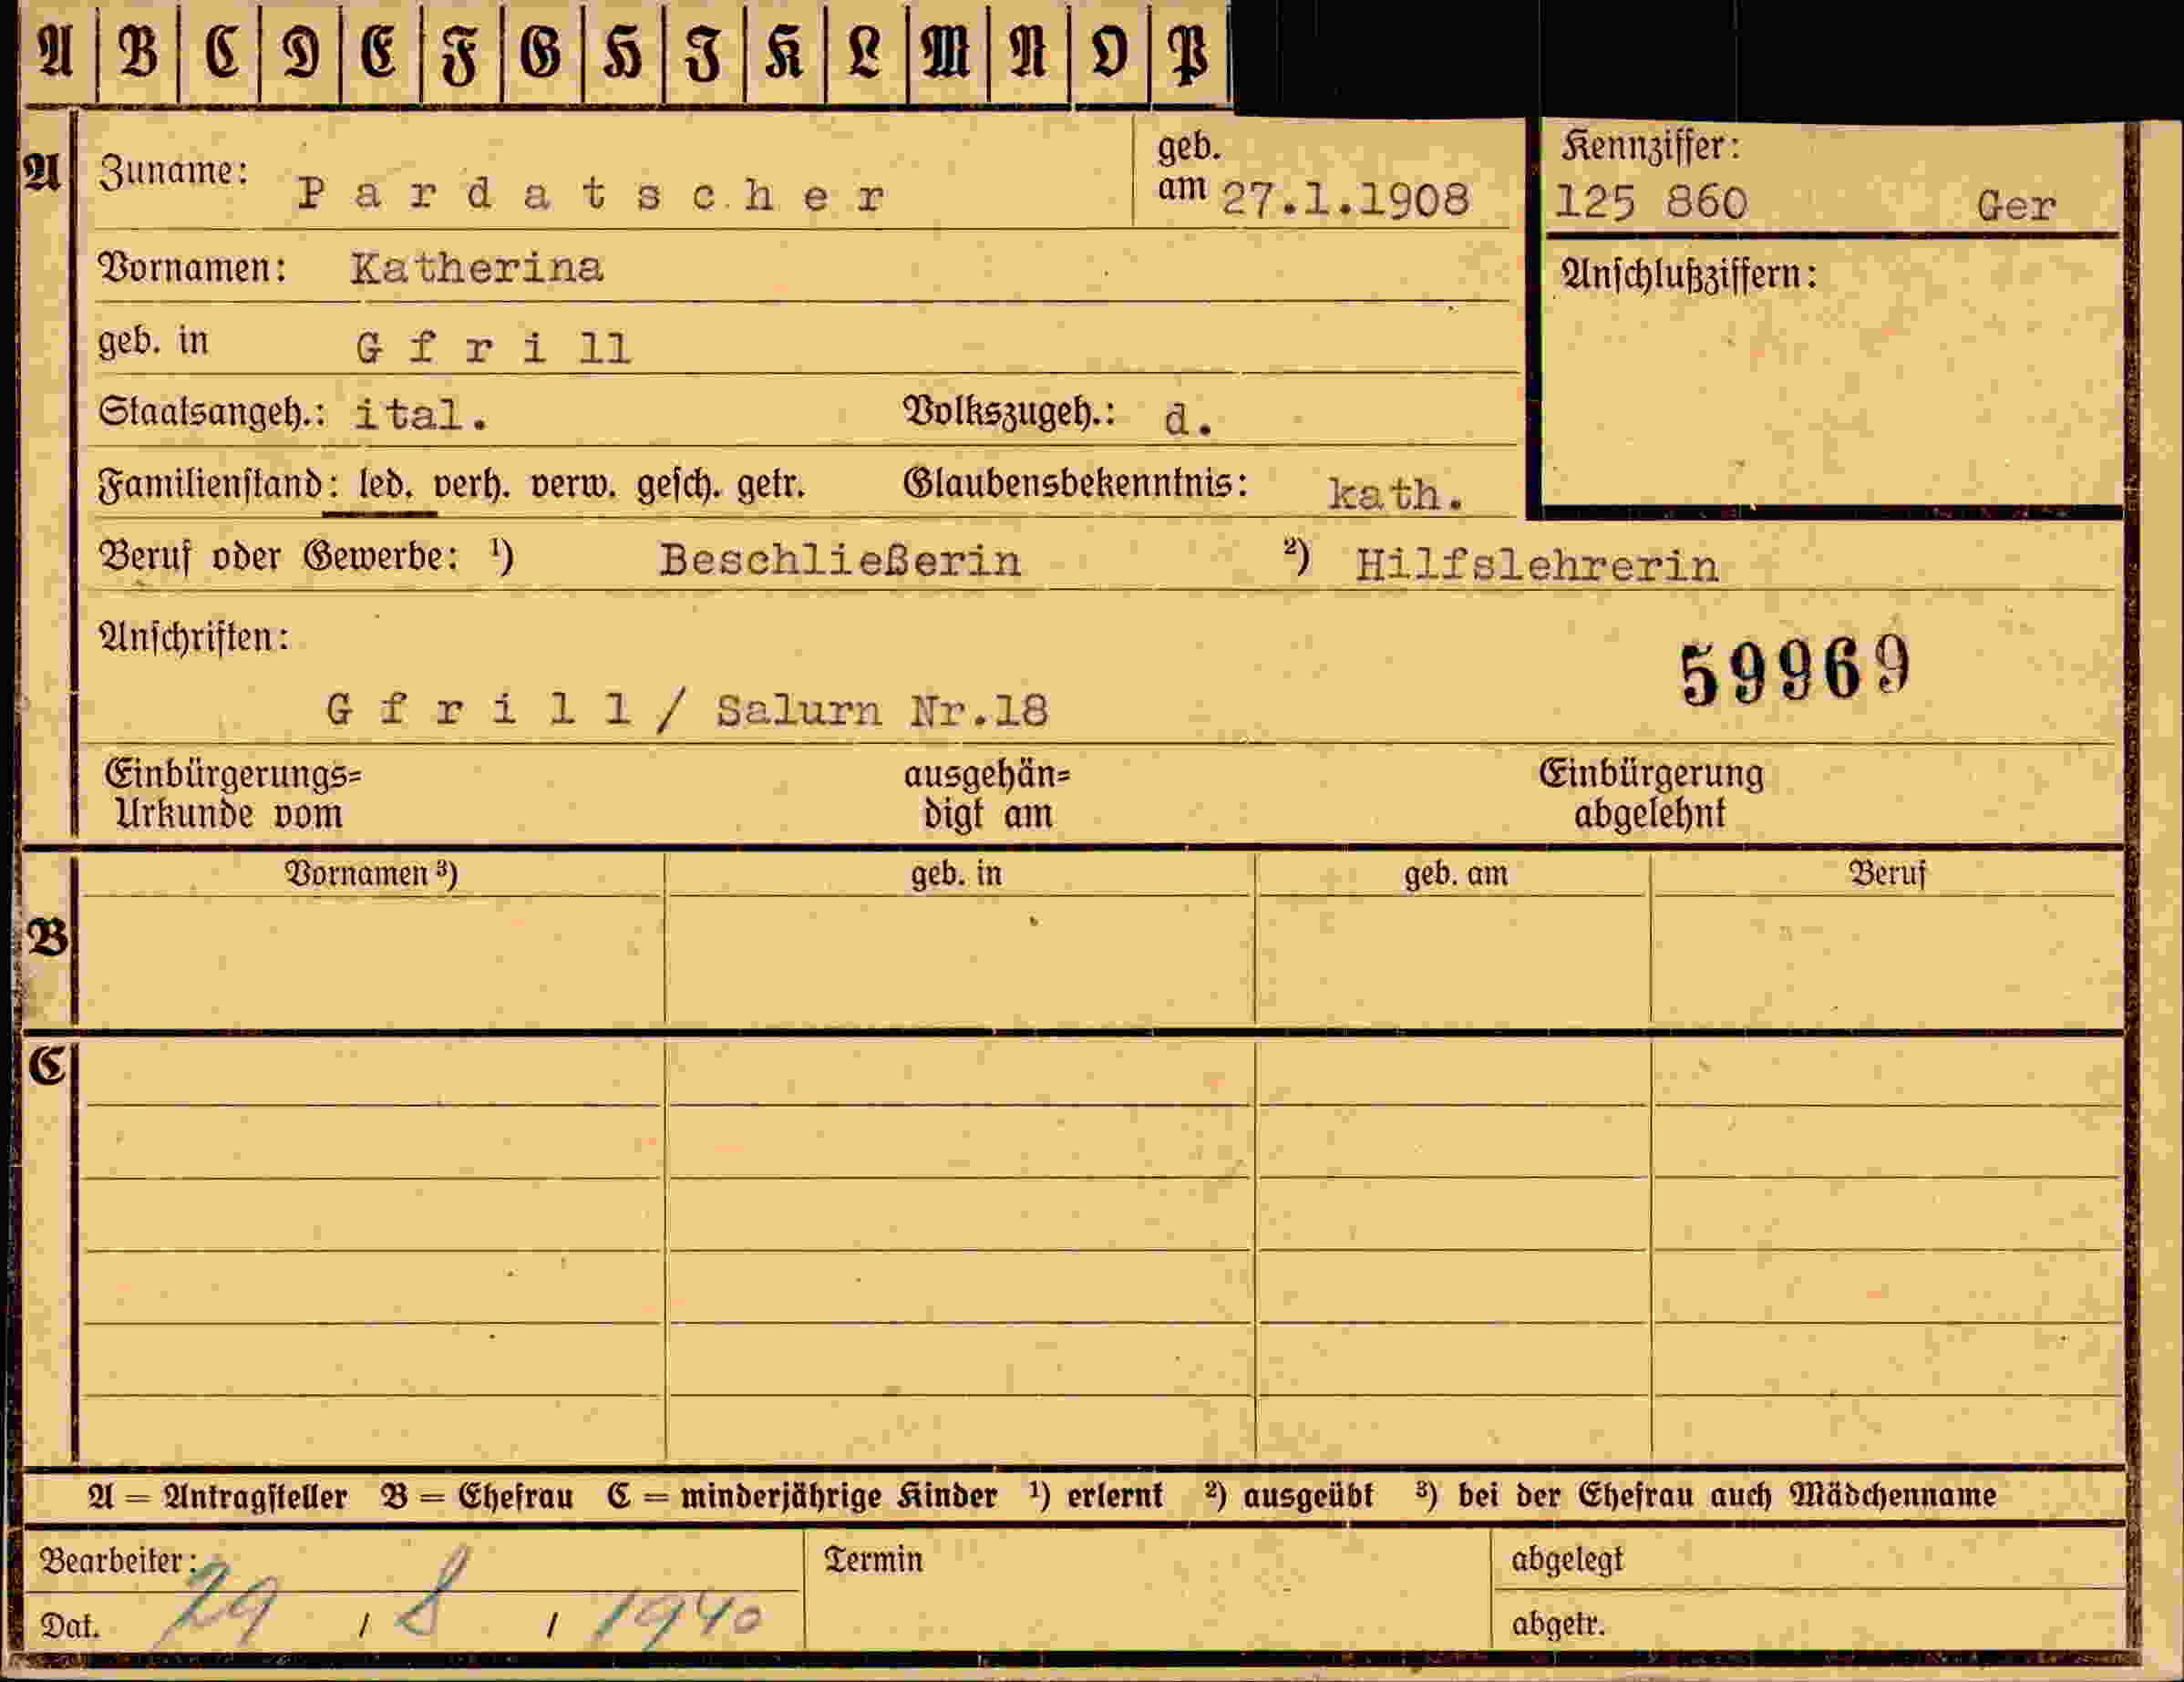 A B C D E F G H J K L M N O P
A Zuname: Pardatscher geb. am 27.1.1908 Kennziffer: 125 860 Ger
Vornamen: Katherina Anschlußziffern:
geb. in Gfrill
Staatsangeh.: ital. Volkszugeh.: d.
Familienstand: led. verh. verw. gesch. getr. Glaubensbekenntnis: kath.
Beruf oder Gewerbe: ¹) Beschließerin ²) Hilfslehrerin
Anschriften:
59969
Gfrill/ Salurn Nr.18
Einbürgerungs= ausgehän= Einbürgerung
Urkunde vom digt am abgelehnt
Vornamen ³) geb. in geb. am Beruf
B
C
A = Antragsteller B = Ehefrau C = minderjährige Kinder ¹) erlernt ²) ausgeübt ³) bei der Ehefrau auch Mädchenname
Bearbeiter: Termin abgelegt
Dat. 29 / 8 / 1940 abgetr.